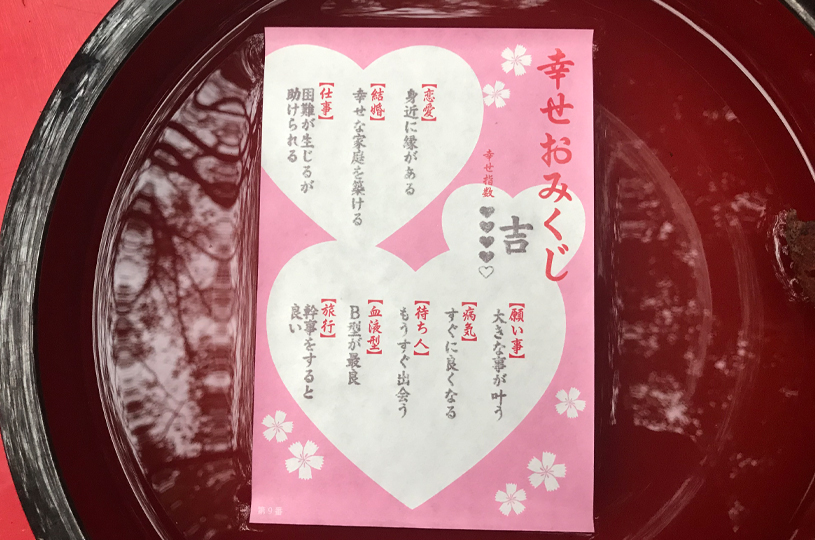 幸せおみくじ
吉
幸せ指数
♥♥♥♥♡
【恋愛】
身近に縁がある
【結婚】
幸せな家庭を築ける
【仕事】
困難が生じるが
助けられる
【願い事】
大きな事が叶う
【病気】
すぐに良くなる
【待ち人】
もうすぐ出会う
【血液型】
B型が最良
【旅行】
幹事をすると
良い
第9番